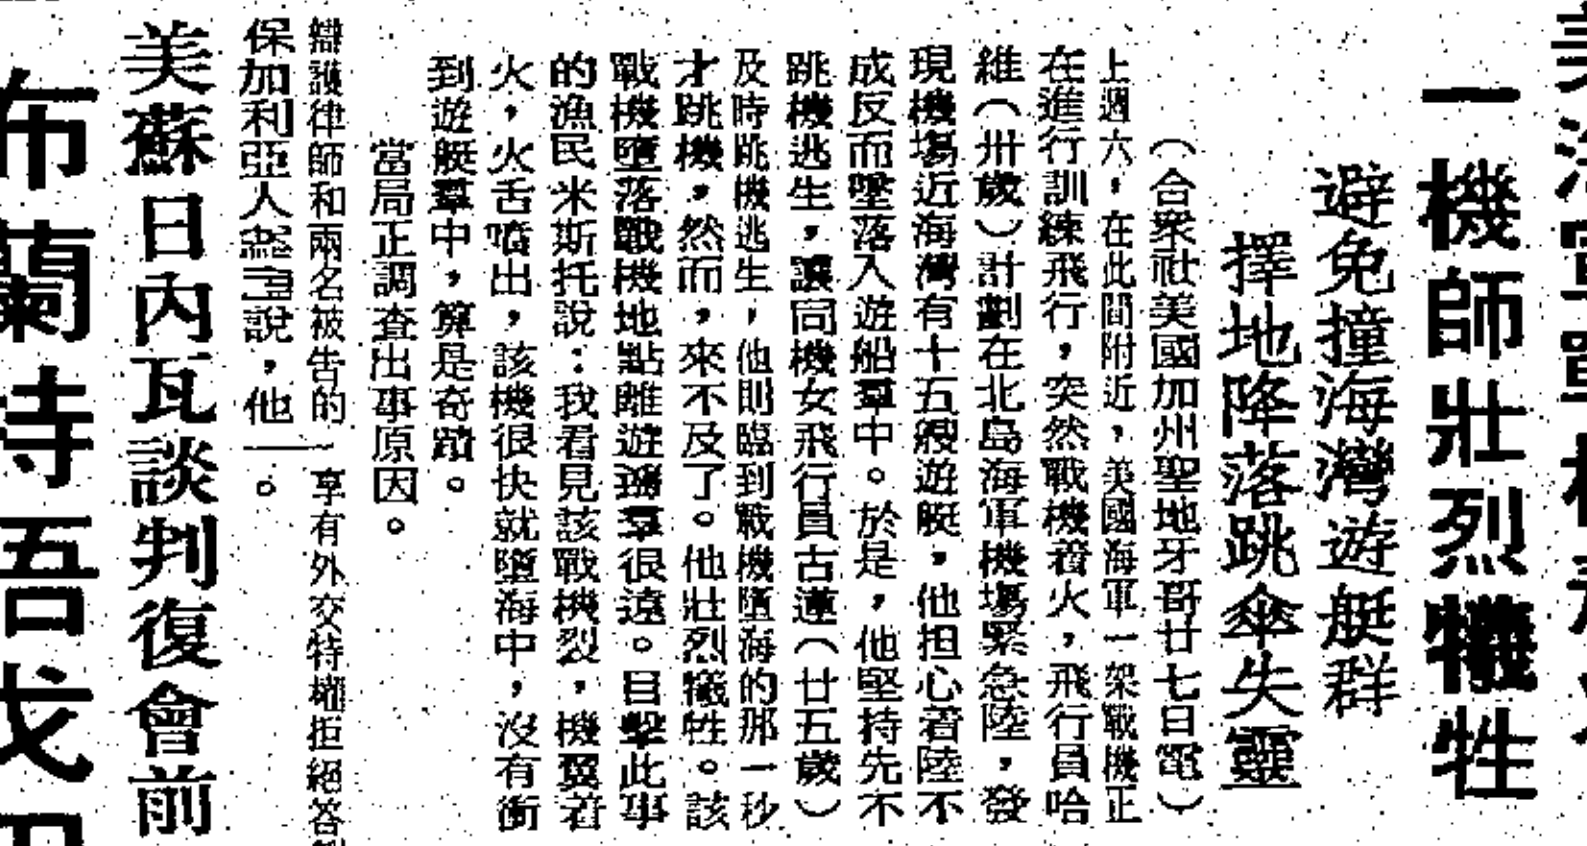 一機師壯烈犧牲
避免撞海灣遊艇群
擇地降落跳傘失靈
（合衆社美國加州聖地牙哥廿七日電）
上週六，在此間附近，美國海軍一架戰機正
在進行訓練飛行，突然戰機着火，飛行員哈
維（卅歲）計劃在北島海軍機場緊急陸，發
現機場近海灣有十五艘遊艇，他担心着陸不
成反而墜落入遊船羣中。於是，他堅持先不
跳機逃生，讓同機女飛行員古蓮（廿五歲）
及時跳機逃生，他則臨到戰機墮海的那一秒
才跳機，然而，來不及了。他壯烈犧牲。該
戰機墮落戰機地點離遊艇羣很遠。目擊此事
的漁民米斯托說：我看見該戰機裂，機翼着
火，火舌噴出，該機很快就墮海中，沒有衝
到遊艇羣中，算是奇蹟。
當局正調查出事原因。
辯護律師和兩名被告的一享有外交特權拒絕答
保加利亞人說，他一。
美蘇日內瓦談判復會前
布蘭特吾戈